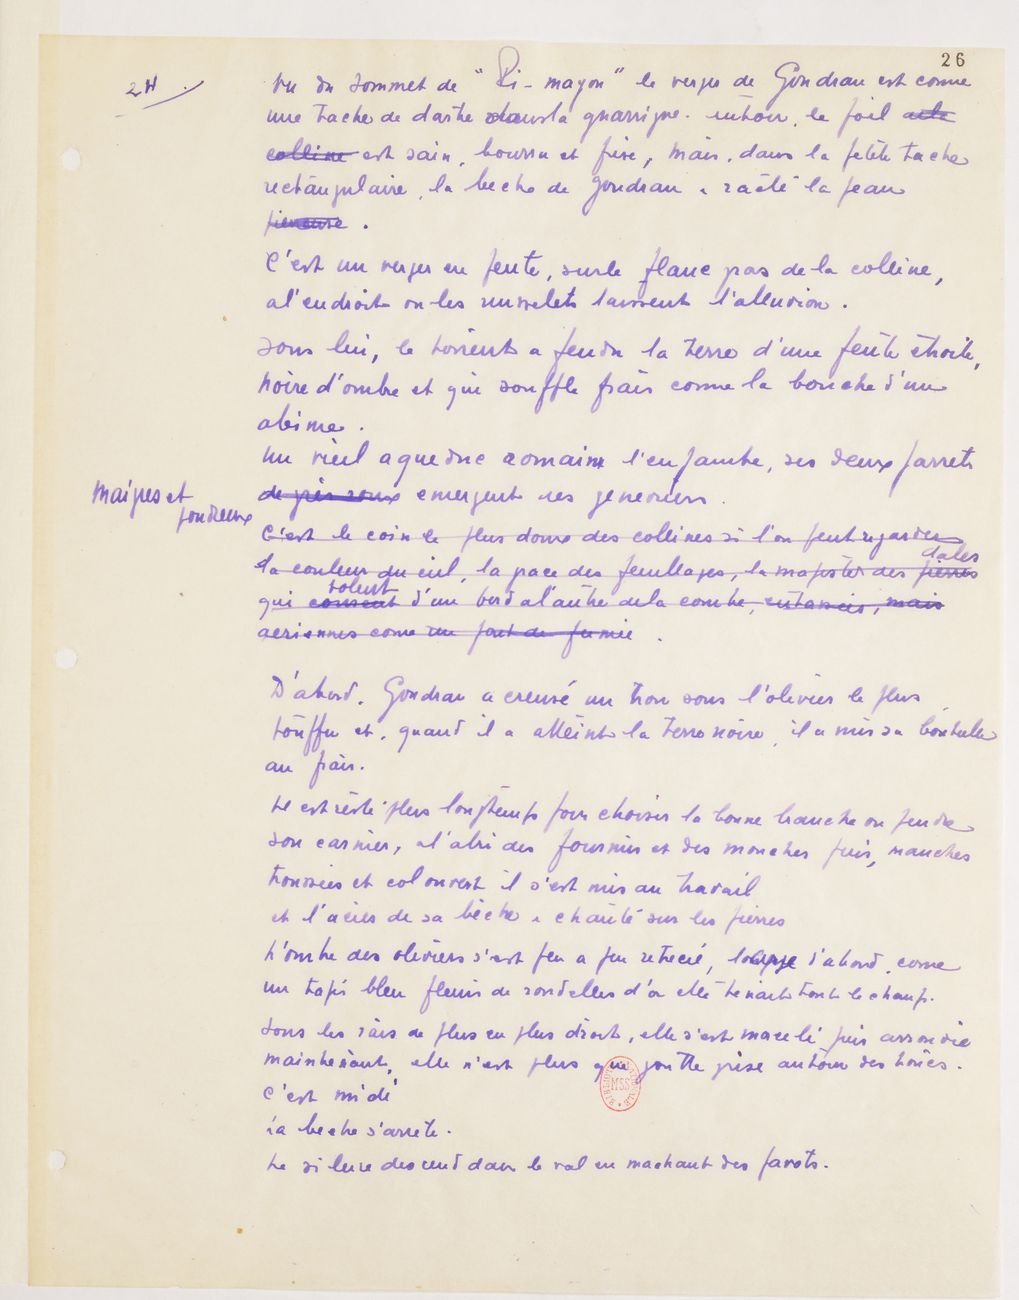 26
2H
Vu du sommet de "Pi-mayon" le verger de Gondran est comme
une tache de dartre dans la guarrigue. autour, le poil de la
colline est sain, bourru et frise, mais, dans la petite tache
rectangulaire, la beche de gondran a raclé la peau
pierreuse.
C'est un verger en pente, sur le flanc pas de la colline,
a l'endroit ou les ruisselets laissent l'alluvion.
sous lui, le torrent a fendu la terre d'une fente étroite,
noire d'ombre et qui souffle frais comme la bouche d'un
abime.
un vieil aqueduc romain l'enjambe, ses deux jarrets
maigres et
poudreux
de grès roux emergent des genevriers.
C'est le coin le plus doux des collines si l'on peut regarder
dales
la couleur du ciel, la pace des feuillages, la majesté des pierres
volent
qui courent d'un bord a l'autre de la combe, mais
aeriennes come un pont de fumée.
D'abord, Gondran a creusé un trou sous l'olivier le plus
touffu et, quand il a atteint la terre noire, il a mis sa bouteille
au frais.
Il est resté plus longtemps pour choisir la bonne branche ou pendre
son carnier, a l'abri des fourmis et des mouches puis, manches
troussées et col ouvert il s'est mis au travail
et l'acier de sa bêche a chanté sur les pierres
L'ombre des oliviers s'est peu a peu retrecié, large d'abord, come
un tapis bleu fleuris de rondelles d'or elle tenait tout le champ.
Sous les rais de plus en plus droit, elle s'est morcelé puis arrondie
maintenant, elle n'est plus que goutte grise autour des troncs.
C'est midi
la beche s'arrete.
Le silence descend dans le val en machant des pavots.
BIBLIOTHEQUE NATIONALE
MSS